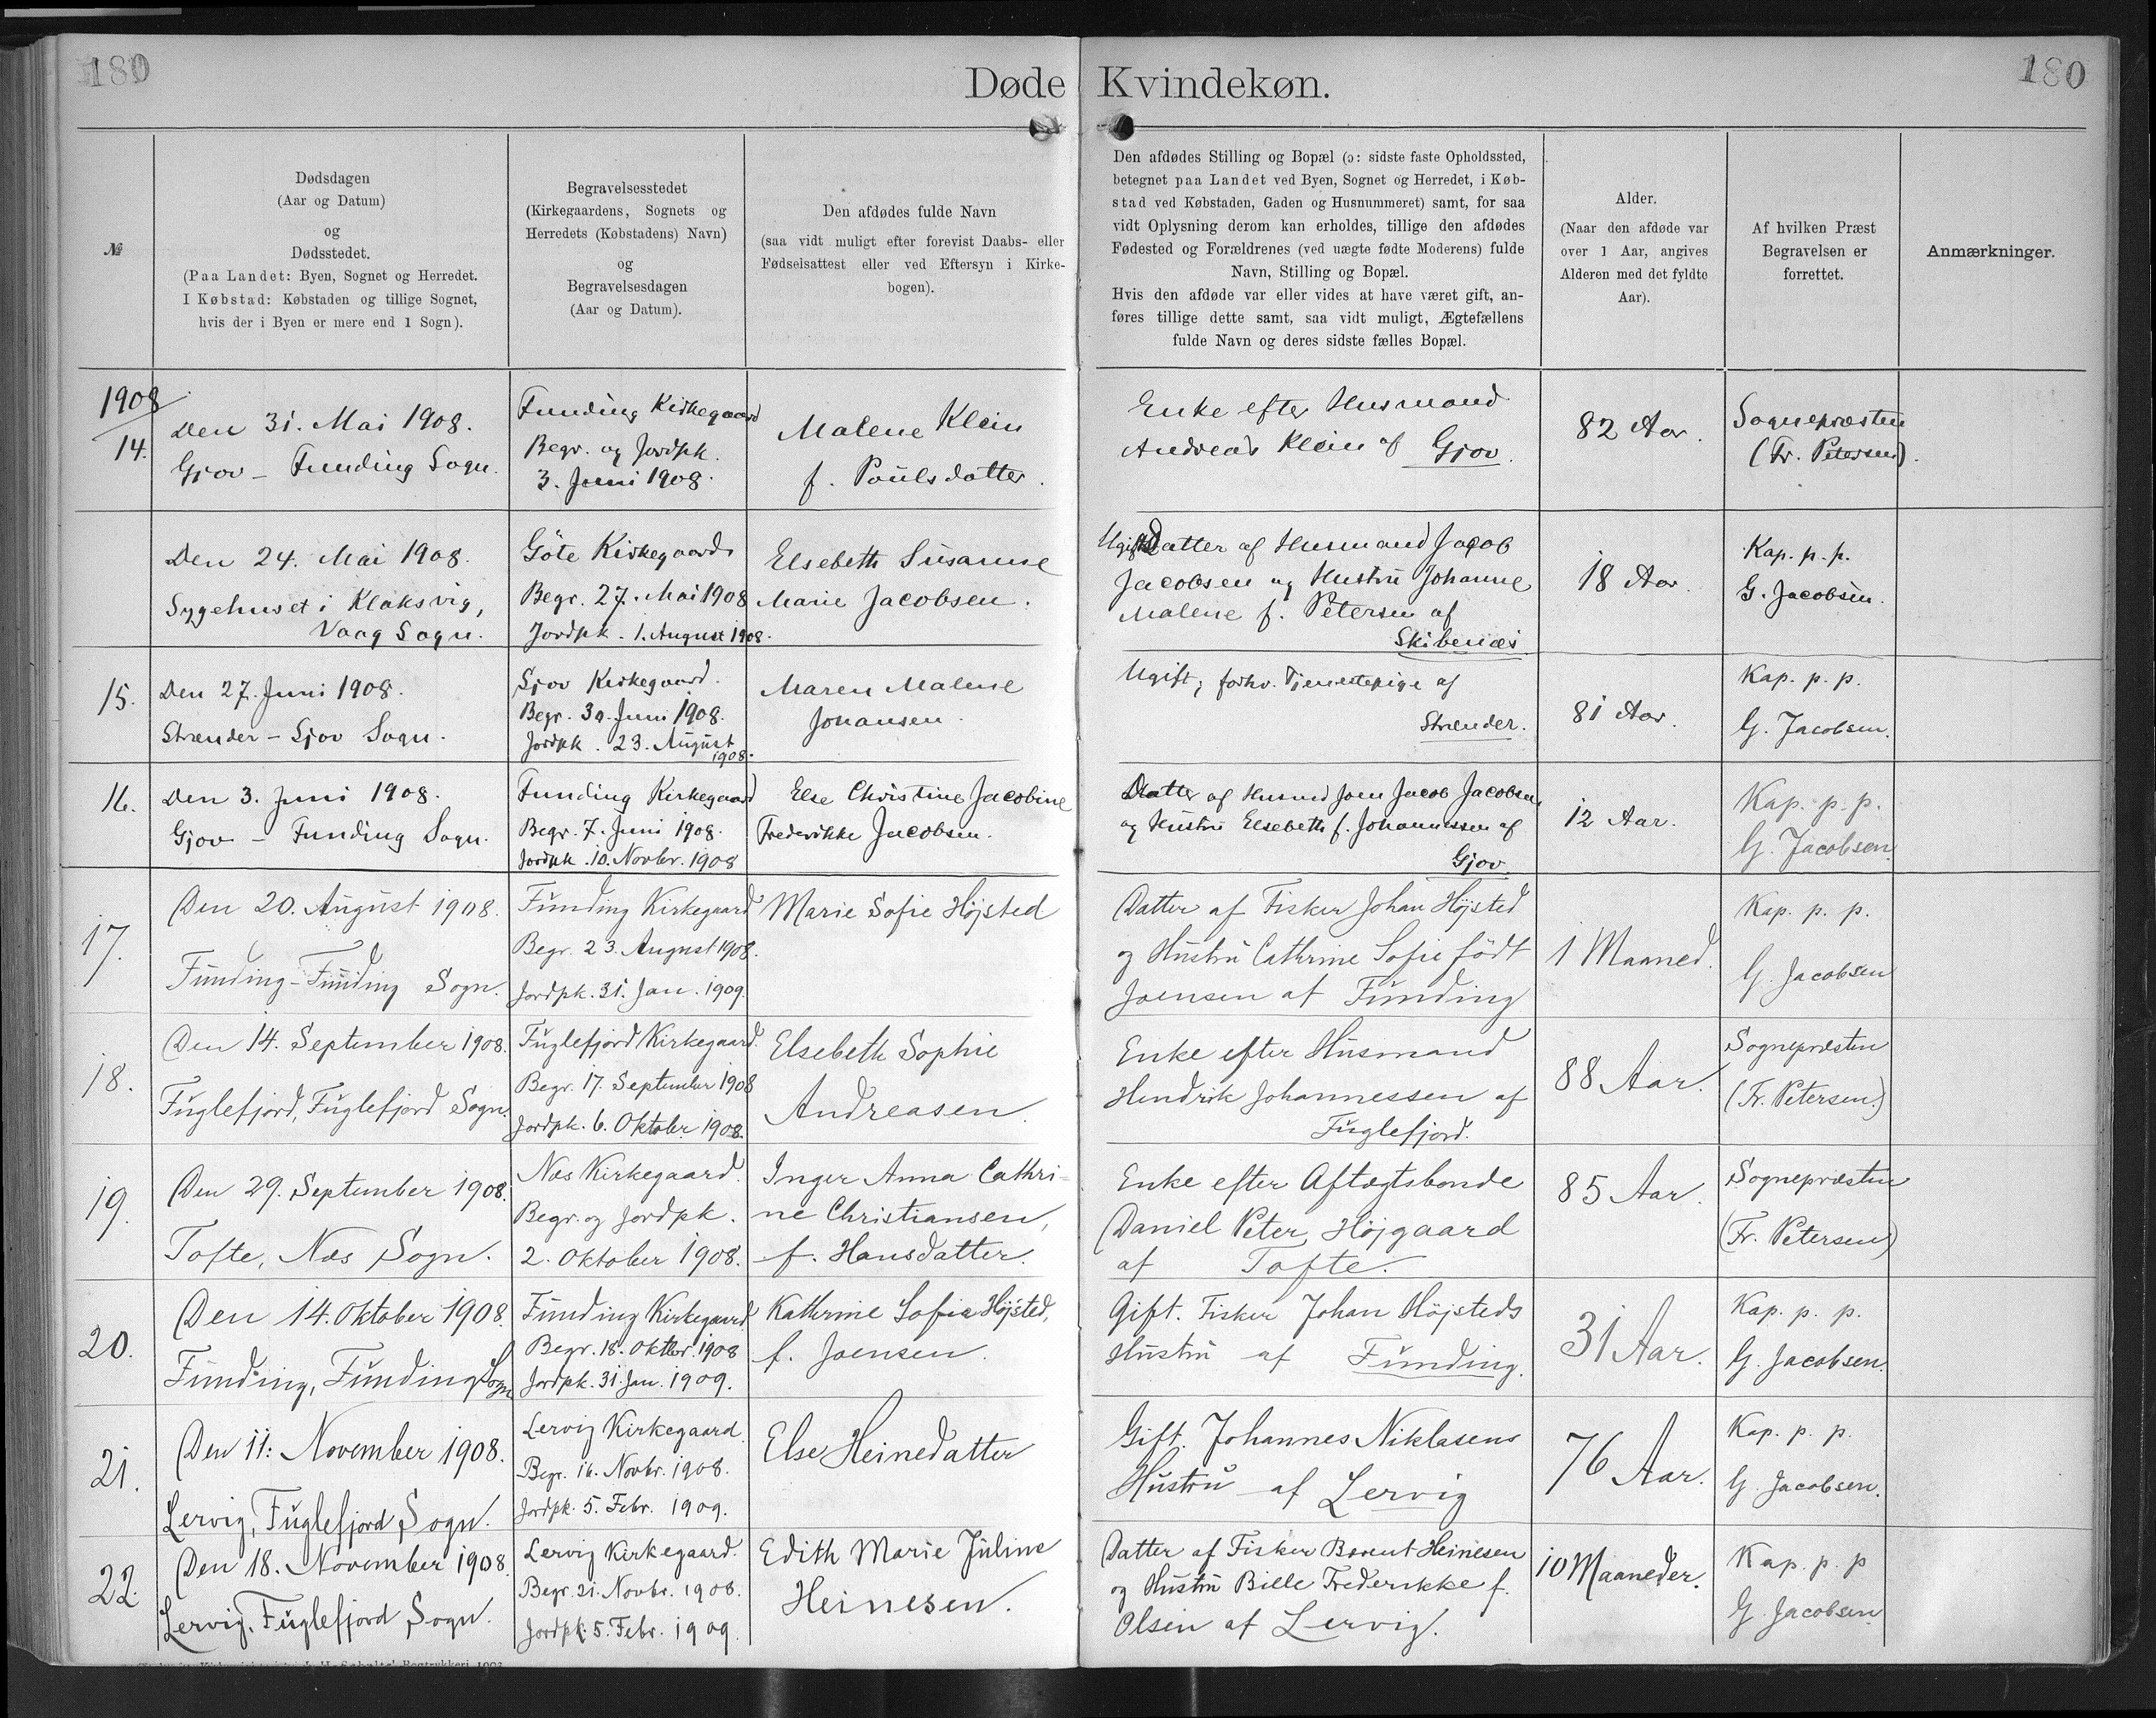 180
180
Døde Kvindekøn.
№
Dødsdagen
(Aar og Datum)
og
Dødsstedet.
(Paa Landet: Byen, Sognet og Herredet.
I Købstad: Købstaden og tillige Sognet,
hvis der i Byen er mere end 1 Sogn).
Begravelsesstedet
(Kirkegaardens, Sognets og
Herredets (Købstadens) Navn)
og
Begravelsesdagen
(Aar og Datum).
Den afdødes fulde Navn
(saa vidt muligt efter forevist Daabs- eller
Fødselsattest eller ved Eftersyn i Kirke-
bogen).
Den afdødes Stilling og Bopæl (ɔ: sidste faste Opholdssted,
betegnet paa Landet ved Byen, Sognet og Herredet, i Køb-
stad ved Købstaden, Gaden og Husnummeret) samt, for saa
vidt Oplysning derom kan erholdes, tillige den afdødes
Fødested og Forældrenes (ved uægte fødte Moderens) fulde
Navn, Stilling og Bopæl.
Hvis den afdøde var eller vides at have været gift, an-
føres tillige dette samt, saa vidt muligt, Ægtefællens
fulde Navn og deres sidste fælles Bopæl.
Alder.
(Naar den afdøde var
over 1 Aar, angives
Alderen med det fyldte
Aar).
Af hvilken Præst
Begravelsen er
forrettet.
Anmærkninger.
1908
14.
Den 31. Mai 1908.
Gjov - Funding Sogn.
Funding Kirkegaard
Begr. og Jordpk.
3. Juni 1908.
Malene Klein
f. Poulsdatter.
Enke efter Husmand
Andreas Klein af Gjov.
82 Aar.
Sognepræsten
(Fr. Petersen).
Den 24. Mai 1908.
Sygehuset i Klaksvig,
Vaag Sogn.
Göte Kirkegaard
Begr. 27. Mai 1908
Jordpk. 1. August 1908.
Elsebeth Susanne
Marie Jacobsen.
Ugift Datter af Husmand Jacob
Jacobsen og Hustru Johanne
Malene f. Petersen af
Skibenæs
18 Aar.
Kap. p. p.
G. Jacobsen.
15.
Den 27. Juni 1908.
Strænder - Sjov Sogn.
Sjov Kirkegaard.
Begr. 30. Juni 1908.
Jordpk. 23. August
1908.
Maren Malene
Johansen.
Ugift, forhv. Tjenestepige af
Strænder.
81 Aar.
Kap. p. p.
G. Jacobsen.
16.
Den 3. Juni 1908.
Gjov - Funding Sogn.
Funding Kirkegaard
Begr. 7. Juni 1908.
Jordpk. 10. Novbr. 1908
Else Christine Jacobine
Frederikke Jacobsen.
Datter af Husmd Joen Jacob Jacobsen
og Hustru Elsebeth f. Johannessen af
Gjov.
12 Aar.
Kap. p. p.
G. Jacobsen.
17.
Den 20. August 1908.
Funding - Funding Sogn.
Funding Kirkegaard
Begr. 23. August 1908.
Jordpk. 31. Jan. 1909.
Marie Sofie Højsted
Datter af Fisker Johan Højsted
og Hustru Cathrine Sofie født
Joensen af Funding
1 Maaned.
Kap. p. p.
G. Jacobsen
18.
Den 14. September 1908.
Fuglefjord, Fuglefjord Sogn.
Fuglefjord Kirkegaard.
Begr. 17. September 1908
Jordpk. 6. Oktober 1908.
Elsebeth Sophie
Andreasen
Enke efter Husmand
Hendrik Johannessen af
Fuglefjord.
88 Aar.
Sognepræsten
(Fr. Petersen.)
19.
Den 29. September 1908.
Tofte, Næs Sogn.
Næs Kirkegaard.
Begr. og Jordpk.
2. Oktober 1908.
Inger Anna Cathri-
ne Christiansen,
f. Hansdatter.
Enke efter Aftægtsbonde
Daniel Peter Højgaard
af Tofte.
85 Aar.
Sognepræsten
(Fr. Petersen)
20.
Den 14. Oktober 1908.
Funding, Funding Sogn
Funding Kirkegaard
Begr. 18. Oktbr. 1908
Jordpk. 31. Jan. 1909.
Kathrine Sofie Højsted,
f. Joensen.
Gift. Fisker Johan Højsteds
Hustru af Funding.
31 Aar.
Kap. p. p.
G. Jacobsen.
21.
Den 11. November 1908.
Lervig, Fuglefjord Sogn.
Lervig Kirkegaard.
Begr. 16. Novbr. 1908.
Jordpk. 5. Febr. 1909.
Else Heinedatter
Gift. Johannes Niklasens
Hustru af Lervig
76 Aar.
Kap. p. p.
G. Jacobsen.
22.
Den 18. November 1908
Lervig, Fuglefjord Sogn.
Lervig Kirkegaard.
Begr. 21. Novbr. 1908.
Jordpk. 5. Febr. 1909.
Edith Marie Juline
Heinesen.
Datter af Fisker Berent Heinesen
og Hustru Bille Frederikke f.
Olsen af Lervig.
10 Maaneder.
Kap. p. p
G. Jacobsen